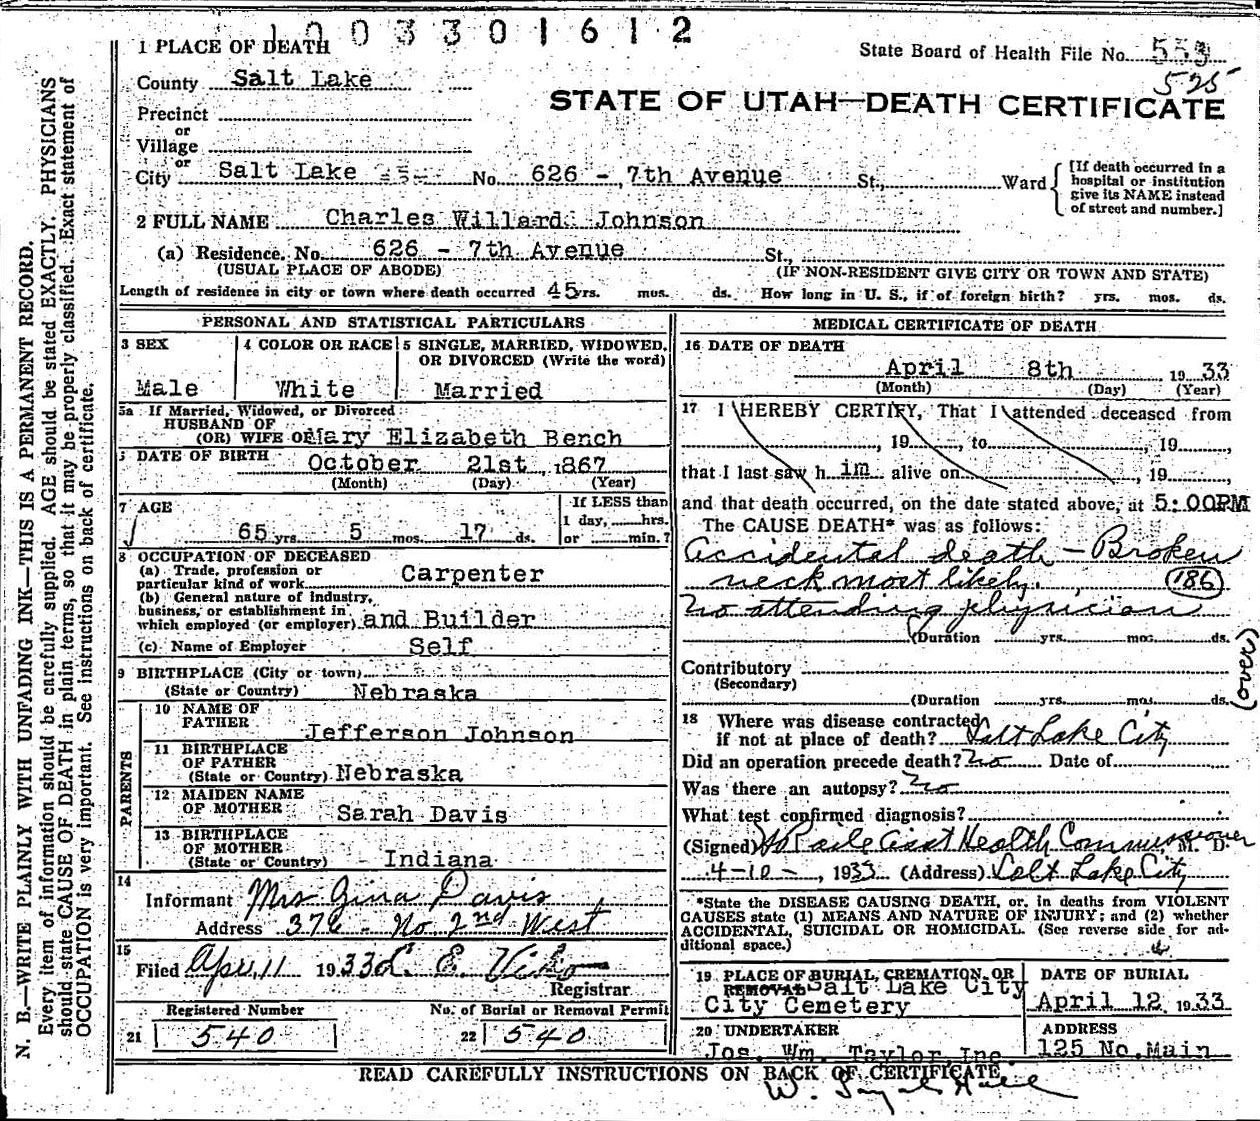 1003301612
1 PLACE OF DEATH
State Board of Health File No.
525
County Salt Lake
STATE OF UTAH—DEATH CERTIFICATE
Precinct
or
Village
or
City Salt Lake No. 626 - 7th Avenue St., Ward
[If death occurred in a
hospital or institution
give its NAME instead
of street and number.]
2 FULL NAME Charles Willard Johnson
(a) Residence. No. 626 - 7th Avenue St.,
(USUAL PLACE OF ABODE) (IF NON-RESIDENT GIVE CITY OR TOWN AND STATE)
Length of residence in city or town where death occurred 45 yrs. mos. ds. How long in U. S., if of foreign birth? yrs. mos. ds.
PERSONAL AND STATISTICAL PARTICULARS
3 SEX
Male
4 COLOR OR RACE
White
5 SINGLE, MARRIED, WIDOWED,
OR DIVORCED (Write the word)
Married
5a If Married, Widowed, or Divorced
HUSBAND OF
(OR) WIFE OF Mary Elizabeth Bench
6 DATE OF BIRTH October 21st, 1867
(Month) (Day) (Year)
7 AGE
65 yrs. 5 mos. 17 ds.
If LESS than
1 day, hrs.
or min.?
8 OCCUPATION OF DECEASED
(a) Trade, profession or
particular kind of work Carpenter
(b) General nature of Industry,
business, or establishment in
which employed (or employer) and Builder
(c) Name of Employer Self
9 BIRTHPLACE (City or town)
(State or Country) Nebraska
PARENTS
10 NAME OF
FATHER Jefferson Johnson
11 BIRTHPLACE
OF FATHER
(State or Country) Nebraska
12 MAIDEN NAME
OF MOTHER Sarah Davis
13 BIRTHPLACE
OF MOTHER
(State or Country) Indiana
14
Informant Mrs Gina Davis
Address 376 - No. 2nd West
15
Filed Apr. 11 1933 L. E. Viko
Registrar
Registered Number
21 540
No. of Burial or Removal Permit
22 540
MEDICAL CERTIFICATE OF DEATH
16 DATE OF DEATH
April 8th 1933
(Month) (Day) (Year)
17 I HEREBY CERTIFY, That I attended deceased from
, 19 , to , 19 ,
that I last saw h im alive on , 19 ,
and that death occurred, on the date stated above, at 5:00PM
The CAUSE DEATH* was as follows:
Accidental death - Broken
neck most likely. 186
No attending physician
(Duration yrs. mos. ds.
Contributory
(Secondary)
(Duration yrs. mos. ds.
(over)
18 Where was disease contracted
if not at place of death? Salt Lake City
Did an operation precede death? No Date of
Was there an autopsy? No
What test confirmed diagnosis?
(Signed) Asst Health Commissioner M. D.
4-10-, 1933 (Address) Salt Lake City
*State the DISEASE CAUSING DEATH, or, in deaths from VIOLENT
CAUSES state (1) MEANS AND NATURE OF INJURY; and (2) whether
ACCIDENTAL, SUICIDAL OR HOMICIDAL. (See reverse side for ad-
ditional space.)
19 PLACE OF BURIAL, CREMATION, OR
REMOVAL Salt Lake City
City Cemetery
DATE OF BURIAL
April 12, 1933
20 UNDERTAKER
Jos. Wm. Taylor, Inc.
ADDRESS
125 No. Main
READ CAREFULLY INSTRUCTIONS ON BACK OF CERTIFICATE.
N. B.—WRITE PLAINLY WITH UNFADING INK—THIS IS A PERMANENT RECORD.
Every item of information should be carefully supplied. AGE should be stated EXACTLY. PHYSICIANS
should state CAUSE OF DEATH in plain terms, so that it may be properly classified. Exact statement of
OCCUPATION is very important. See instructions on back of certificate.